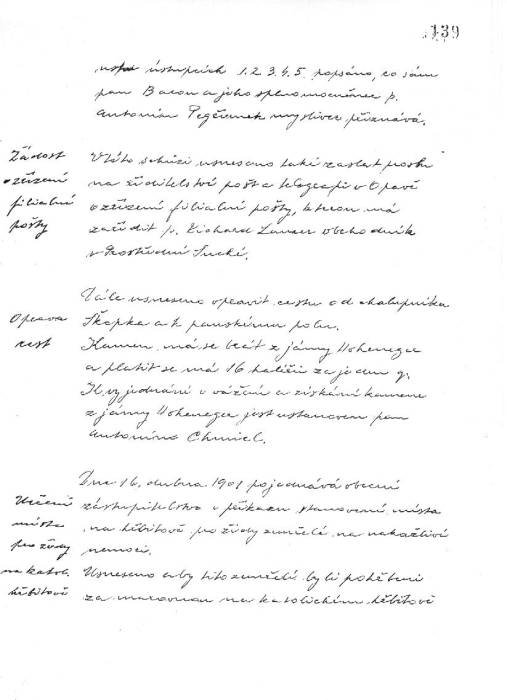 139
ústupcích 1.2.3.4.5. popsáno, co sám
pan Bacon a jeho splnomocněnec p.
Antonín myslivec přiznává.
Žádost
o zřízení
filialní
pošty
V této schůzi usneseno také zaslat prosbu
na ředitelství pošt a telegrafů v Opavě
o zřízení filialní pošty, kterou má
zařídit p. Richard Lanser obchodník
v Prostřední Suché.
Oprava
cest
Dále usneseno opravit cestu od chalupníka
Škopka a k panskému poli.
Kamen má se brát z jámy Hohenegger
a platit se má 16 haléřů za jeden q.
K vyjednání o vážení a získání kamene
z jámy Hohenegger jest ustanoven pan
Antonín Chmiel.
Určení
místa
pro židy
na katol.
hřbitově
Dne 16. dubna 1901 pojednává obecní
zástupitelstvo o příkazu stanovení místa
na hřbitově pro židy zemřelé na nakažlivé
nemoci.
Usneseno aby tito zemřelí byli pohřbeni
za marovnou na katolickém hřbitově